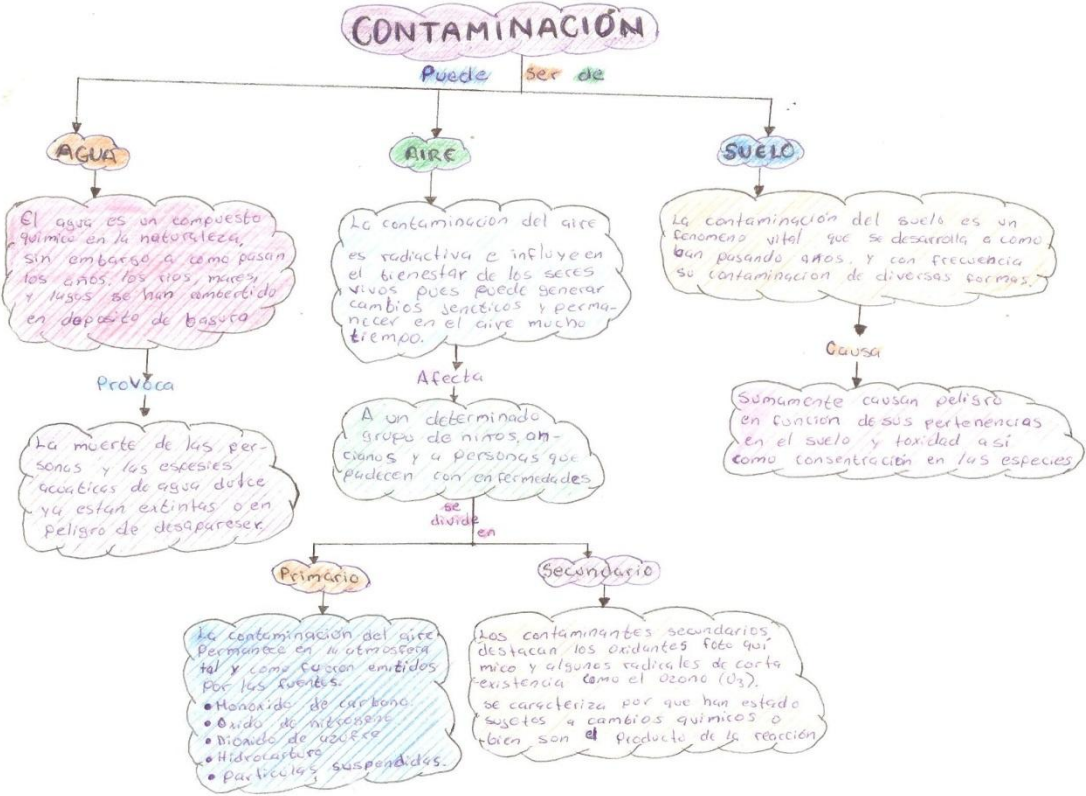 CONTAMINACIÓN
Puede ser de
AGUA
El agua es un compuesto
químico en la naturaleza,
sin embargo a como pasan
los años, los rios, mares,
y lagos se han convertido
en deposito de basura
Provoca
La muerte de las per-
sonas y las espesies
acuaticas de agua dulce
ya estan extintas o en
peligro de desapareser.
AIRE
La contaminación del aire
es radiactiva e influye en
el bienestar de los seres
vivos pues puede generar
cambios geneticos y perma-
necer en el aire mucho
tiempo.
Afecta
A un determinado
grupo de niños, an-
cianos y a personas que
padecen con enfermedades
se
divide
en
Primario
La contaminación del aire
Permanece en la atmosfera
tal y como fueron emitidos
por las fuentes.
• Monoxido de carbono.
• Oxido de nitrogeno
• Dioxido de azufre
• Hidrocarburo
• particulas suspendidas.
Secundario
Los contaminantes secundarios
destacan los oxidantes foto quí
mico y algunos radicales de corta
existencia como el Ozono (O₃).
se caracteriza por que han estado
sujetos a cambios quimicos o
bien son el Producto de la reacción
SUELO
La contaminación del suelo es un
fenomeno vital que se desarrolla a como
ban pasando años, y con frecuencia
su contaminación de diversas formas.
Causa
Sumamente causan peligro
en función de sus pertenencias
en el suelo y toxidad así
como consentración en las especies